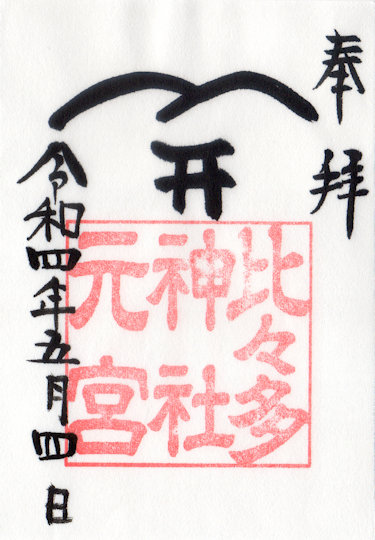 奉拝
比々多
神社
元宮
令和四年五月四日